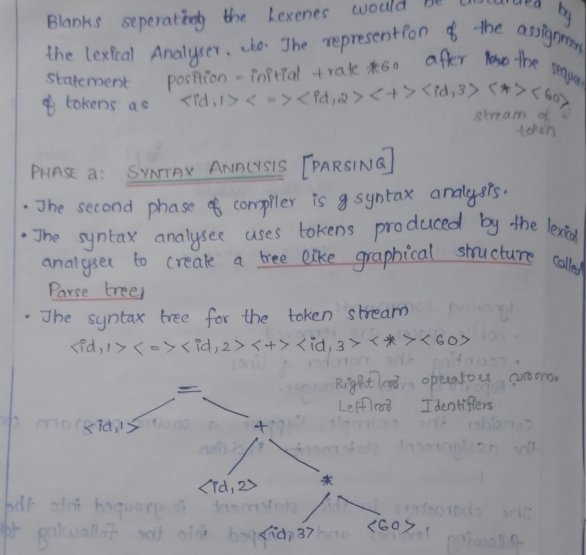 Blanks seperating the Lexenes would be discarded by
the lexical Analyser. The represention of the assignmen
statement position = initial + rate *60 after the sequen
of tokens as <id,1> < = > <id,2> < + > <id,3> < * > <60>
stream of
token
PHASE 2: SYNTAX ANALYSIS [PARSING]
• The second phase of compiler is syntax analysis.
• The syntax analyser uses tokens produced by the lexical
analyser to create a tree like graphical structure called
Parse tree,
• The syntax tree for the token stream
<id,1> < = > <id,2> < + > <id,3> < * > <60>
Right operators
Left Identifiers
=
<id,1> +
<id,2> *
<id,3> <60>